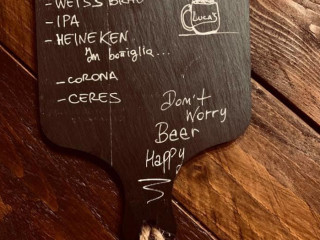 - WEISS BRAU
- IPA
- HEINEKEN
In bottiglia...
- CORONA
- CERES
LUCA'S
Don't
Worry
Beer
Happy